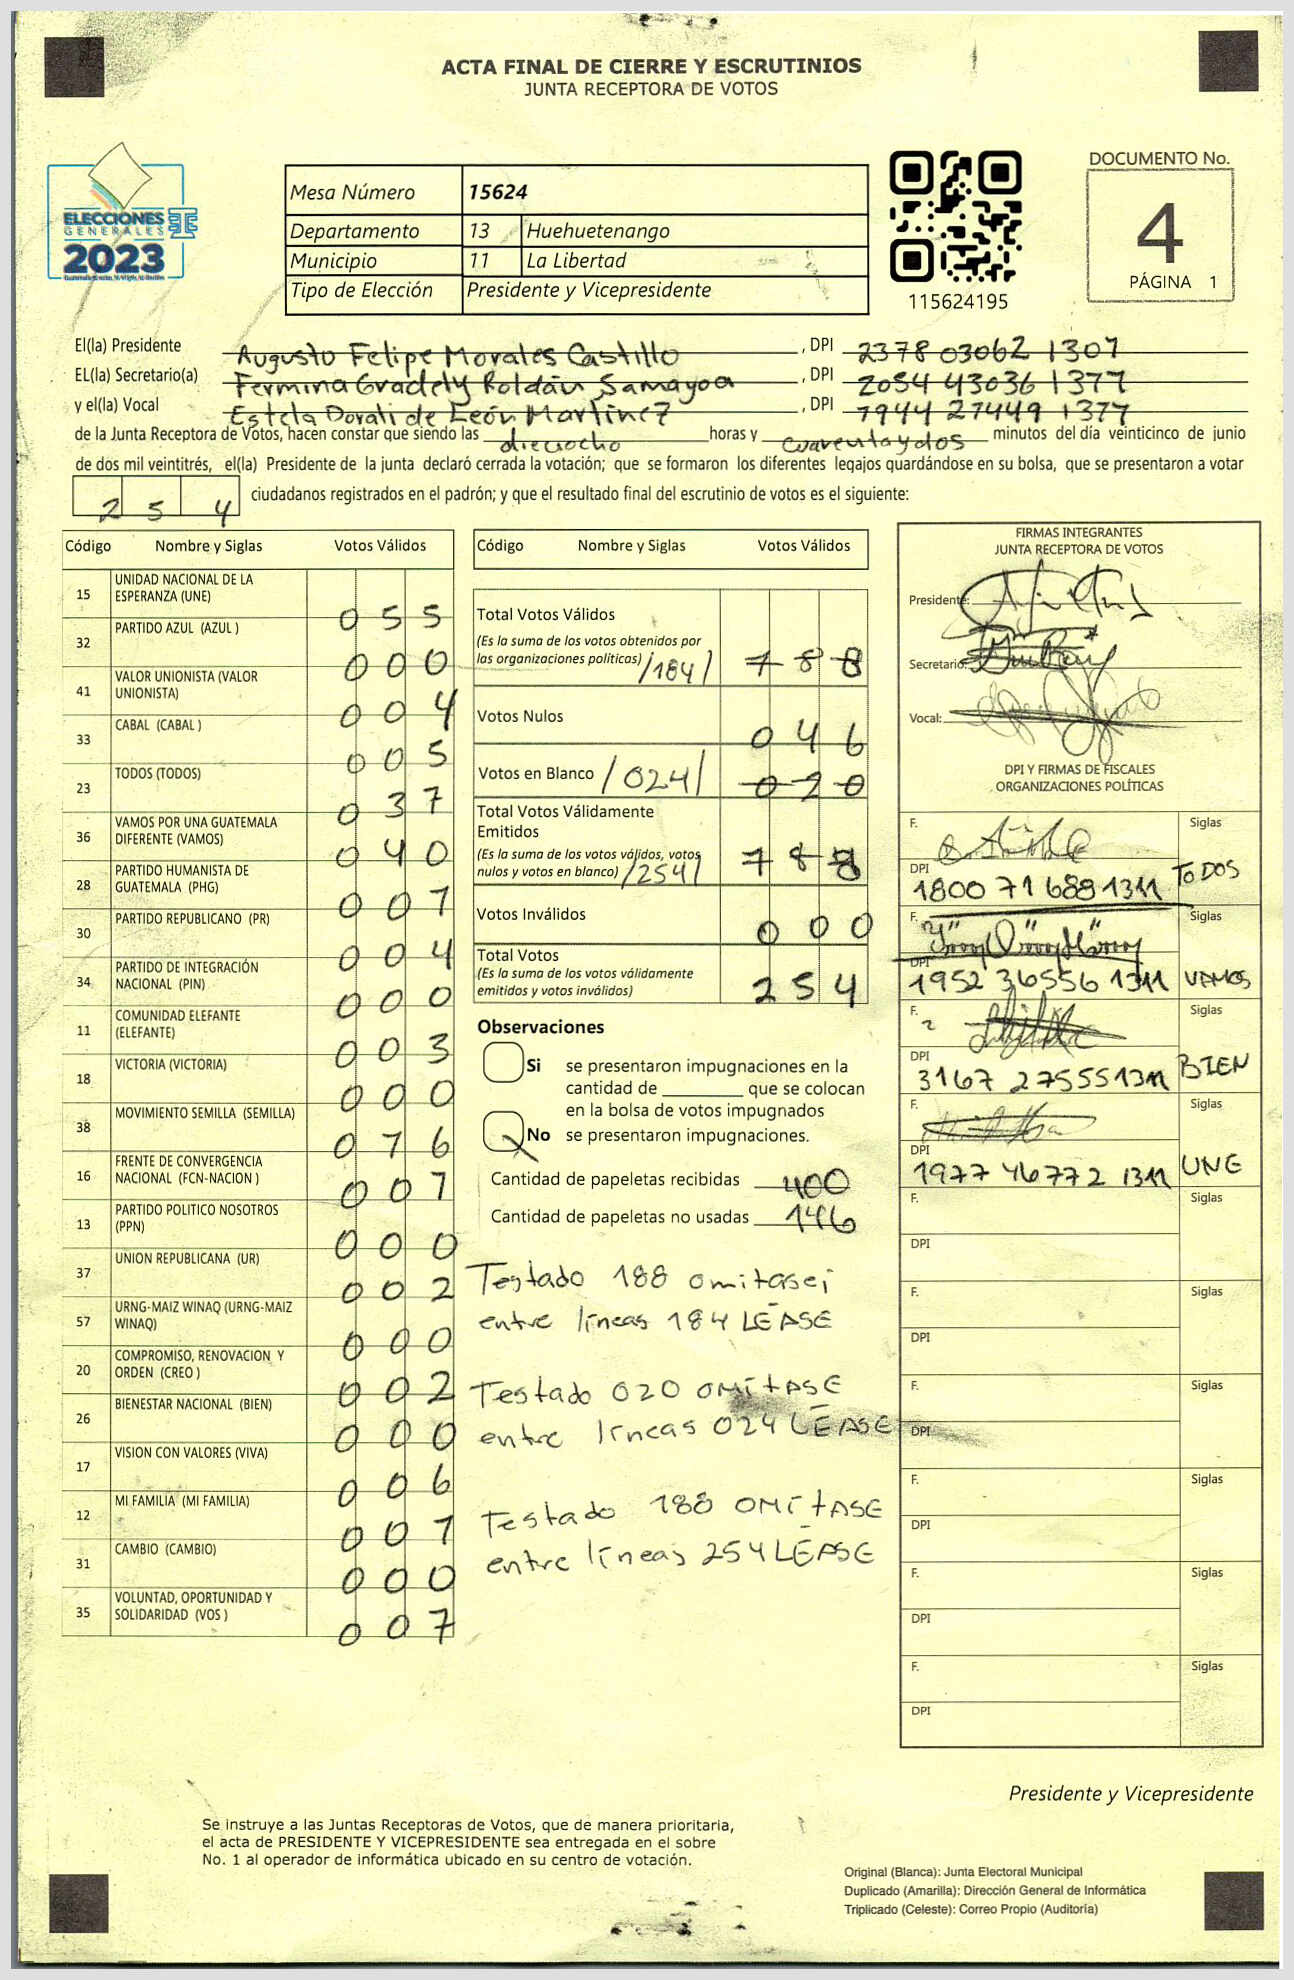 ACTA FINAL DE CIERRE Y ESCRUTINIOS
JUNTA RECEPTORA DE VOTOS
ELECCIONES
GENERALES
2023
Mesa Número 15624
Departamento 13 Huehuetenango
Municipio 11 La Libertad
Tipo de Elección Presidente y Vicepresidente
115624195
DOCUMENTO No.
4
PÁGINA 1
El(la) Presidente Augusto Felipe Morales Castillo , DPI 2378 03062 1307
EL(la) Secretario(a) Fermina Gradely Roldán Samayoa , DPI 2054 43036 1377
y el(la) Vocal Estela Dorali de León Martínez , DPI 7944 27449 1377
de la Junta Receptora de Votos, hacen constar que siendo las dieciocho horas y cuarenta y dos minutos del día veinticinco de junio
de dos mil veintitrés, el(la) Presidente de la junta declaró cerrada la votación; que se formaron los diferentes legajos quardándose en su bolsa, que se presentaron a votar
254 ciudadanos registrados en el padrón; y que el resultado final del escrutinio de votos es el siguiente:
Código Nombre y Siglas Votos Válidos
15 UNIDAD NACIONAL DE LA
ESPERANZA (UNE) 055
32 PARTIDO AZUL (AZUL ) 000
41 VALOR UNIONISTA (VALOR
UNIONISTA) 004
33 CABAL (CABAL ) 005
23 TODOS (TODOS) 037
36 VAMOS POR UNA GUATEMALA
DIFERENTE (VAMOS) 040
28 PARTIDO HUMANISTA DE
GUATEMALA (PHG) 001
30 PARTIDO REPUBLICANO (PR) 004
34 PARTIDO DE INTEGRACIÓN
NACIONAL (PIN) 000
11 COMUNIDAD ELEFANTE
(ELEFANTE) 003
18 VICTORIA (VICTORIA) 000
38 MOVIMIENTO SEMILLA (SEMILLA) 016
16 FRENTE DE CONVERGENCIA
NACIONAL (FCN-NACION ) 001
13 PARTIDO POLITICO NOSOTROS
(PPN) 000
37 UNION REPUBLICANA (UR) 002
57 URNG-MAIZ WINAQ (URNG-MAIZ
WINAQ) 000
20 COMPROMISO, RENOVACION Y
ORDEN (CREO ) 002
26 BIENESTAR NACIONAL (BIEN) 000
17 VISION CON VALORES (VIVA) 006
12 MI FAMILIA (MI FAMILIA) 001
31 CAMBIO (CAMBIO) 000
35 VOLUNTAD, OPORTUNIDAD Y
SOLIDARIDAD (VOS ) 007
Código Nombre y Siglas Votos Válidos
Total Votos Válidos
(Es la suma de los votos obtenidos por
las organizaciones políticas) /184/ 188
Votos Nulos 046
Votos en Blanco /024/ 020
Total Votos Válidamente
Emitidos
(Es la suma de los votos válidos, votos
nulos y votos en blanco) /254/ 188
Votos Inválidos 000
Total Votos
(Es la suma de los votos válidamente
emitidos y votos inválidos) 254
Observaciones
Si se presentaron impugnaciones en la
cantidad de ________ que se colocan
en la bolsa de votos impugnados
No se presentaron impugnaciones.
Cantidad de papeletas recibidas 400
Cantidad de papeletas no usadas 146
Testado 188 omitasei
entre líneas 184 LÉASE
Testado 020 OMÍTASE
entre líneas 024 LÉASE
Testado 188 OMÍTASE
entre líneas 254 LÉASE
FIRMAS INTEGRANTES
JUNTA RECEPTORA DE VOTOS
Presidente:
Secretario:
Vocal:
DPI Y FIRMAS DE FISCALES
ORGANIZACIONES POLÍTICAS
F. Siglas
DPI 1800 71688 1311 TODOS
F. Siglas
DPI 1952 36556 1311 VAMOS
F. Siglas
DPI 3167 27555 1311 BIEN
F. Siglas
DPI 1977 46772 1311 UNE
F. Siglas
DPI
F. Siglas
DPI
F. Siglas
DPI
F. Siglas
DPI
F. Siglas
DPI
F. Siglas
DPI
Presidente y Vicepresidente
Se instruye a las Juntas Receptoras de Votos, que de manera prioritaria,
el acta de PRESIDENTE Y VICEPRESIDENTE sea entregada en el sobre
No. 1 al operador de informática ubicado en su centro de votación.
Original (Blanca): Junta Electoral Municipal
Duplicado (Amarilla): Dirección General de Informática
Triplicado (Celeste): Correo Propio (Auditoría)